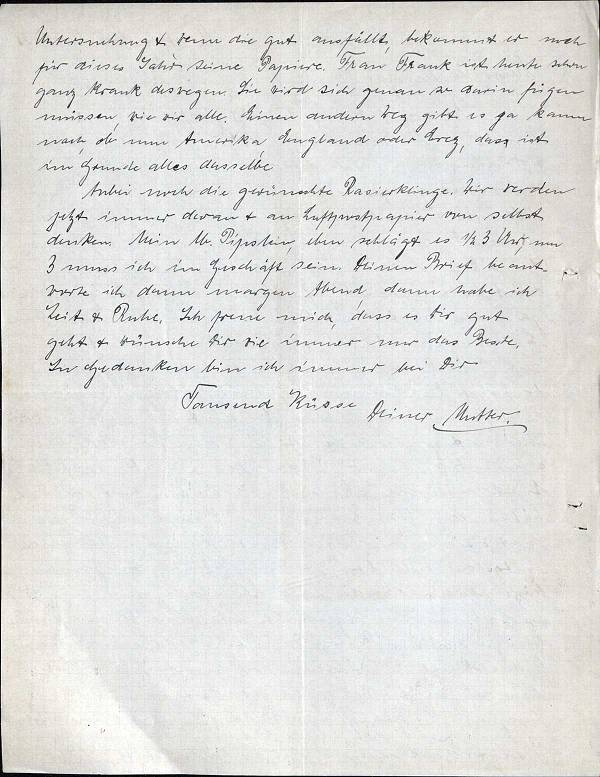 Untersuchung & wenn die gut ausfällt, bekommt er noch
für dieses Jahr seine Papiere. Frau Frank ist heute schon
ganz krank deswegen. Sie wird sich genau so darin fügen
müssen, wie wir alle. Einen andern Weg gibt es ja kaum
noch ob nun Amerika, England oder Erez, dass ist
im Grunde alles dasselbe
Anbei noch die gewünschte Rasierklinge. Wir werden
jetzt immer daran & an Luftpostpapier von selbst
denken. Mein lb. Pipslein, eben schlägt es ½ 3 Uhr, um
3 muss ich im Geschäft sein. Deinen Brief beant-
worte ich dann morgen Abend, dann habe ich
Zeit & Ruhe. Ich freue mich, dass es Dir gut
geht & wünsche Dir wie immer nur das Beste.
In Gedanken bin ich immer bei Dir
Tausend Küsse Deiner Mutter.